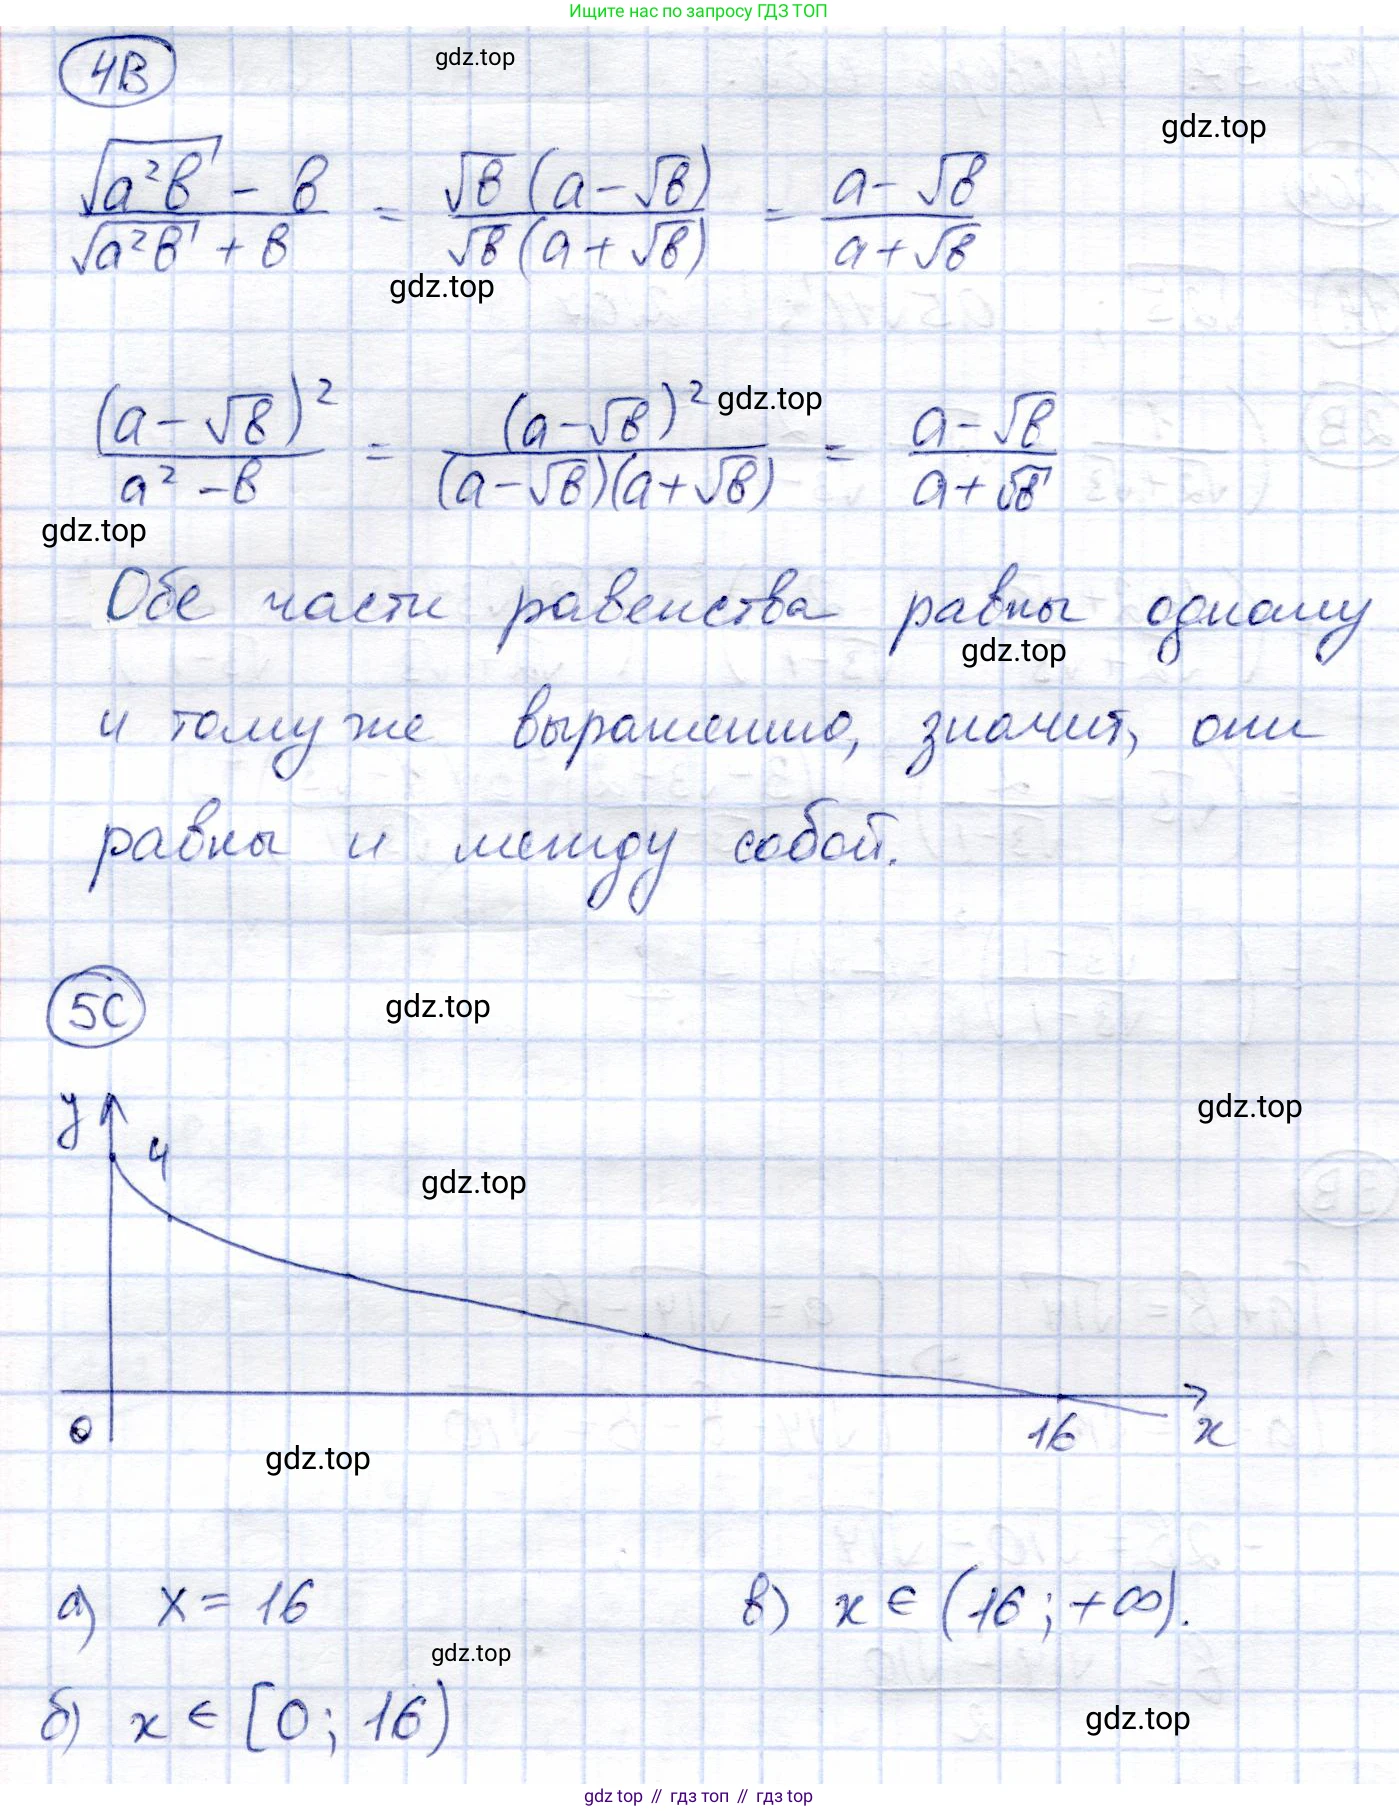 Ищите нас по запросу ГДЗ ТОП
4В
gdz.top
gdz.top
(√(a²b) - b)/(√(a²b) + b) = (√b (a-√b))/(√b (a+√b)) = (a-√b)/(a+√b)
gdz.top
(a-√b)²/(a²-b) = (a-√b)²/((a-√b)(a+√b)) = (a-√b)/(a+√b)
gdz.top
gdz.top
Обе части равенства равны одному
gdz.top
и тому же выражению, значит, они
равны и между собой.
5С
gdz.top
y
gdz.top
4
gdz.top
0
16
x
gdz.top
а) x = 16
в) x ∈ (16; +∞).
gdz.top
б) x ∈ [0; 16)
gdz.top
gdz top // гдз топ // гдз top